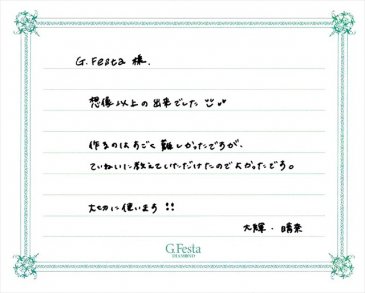 G.Festa 様.
想像以上の出来でした
作るのはすごく難しかったですが、
ていねいに教えていただけたのでよかったです。
大切に使います!!
大輝・晴菜
G.Festa
DIAMOND